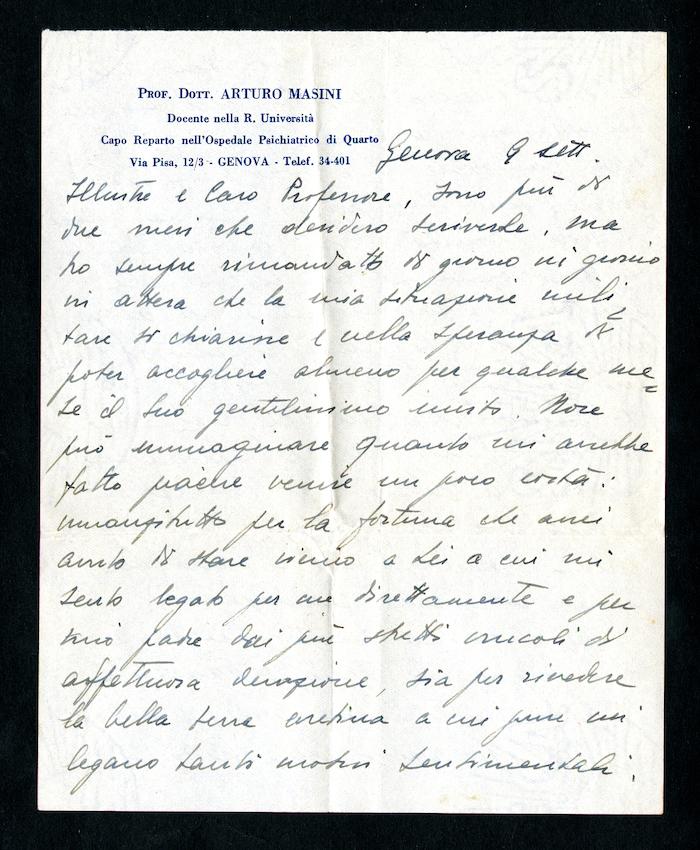 Prof. Dott. ARTURO MASINI
Docente nella R. Università
Capo Reparto nell'Ospedale Psichiatrico di Quarto
Via Pisa, 12/3 - GENOVA - Telef. 34-401
Genova 9 sett.
Illustre e Caro Professore, sono più di
due mesi che desidero scriverLe, ma
ho sempre rimandato di giorno in giorno
in attesa che la mia situazione mili-
tare si chiarisse e nella speranza di
poter accogliere almeno per qualche me=
se il Suo gentilissimo invito. Non
può immaginare quanto mi avrebbe
fatto piacere venire un poco costà:
innanzitutto per la fortuna che avrei
avuto di stare vicino a Lei a cui mi
sento legato per me direttamente e per
mio padre dai più stretti vincoli di
affettuosa devozione, sia per rivedere
la bella terra aretina a cui pure mi
legano tanti motivi sentimentali.